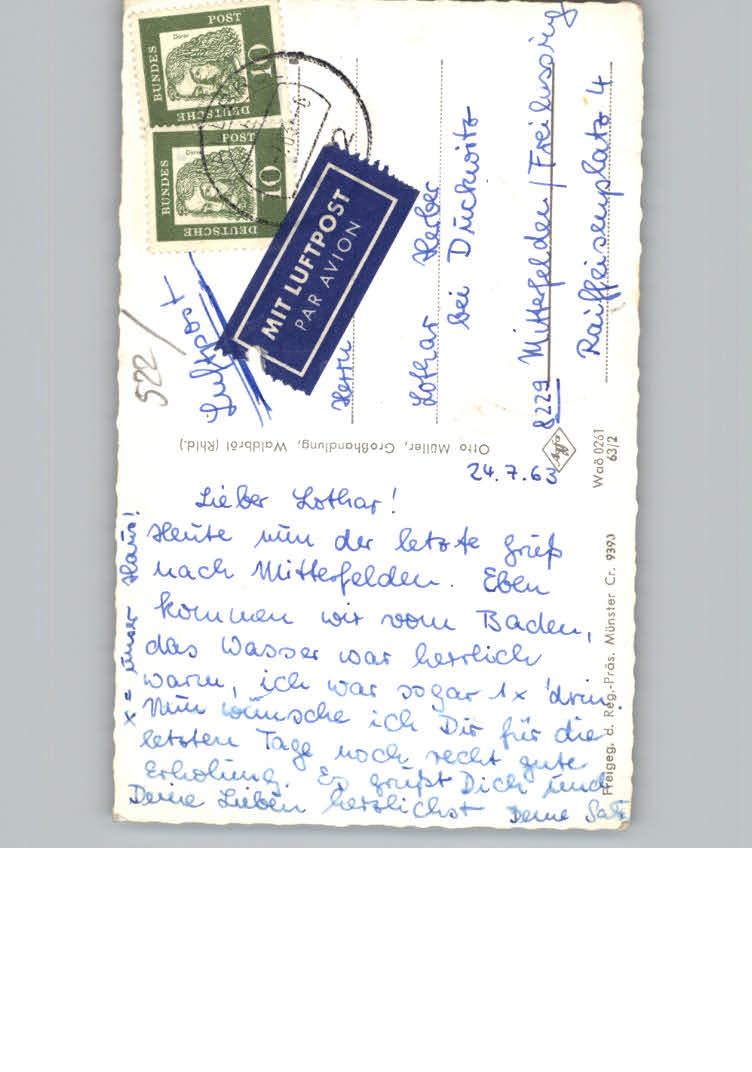 24.7.63
Lieber Lothar!
Heute nun der letzte Gruß
nach Mitterfelden. Eben
kommen wir vom Baden,
das Wasser war herrlich
warm, ich war sogar 1x 'drin.
Nun wünsche ich Dir für die
letzten Tage noch recht gute
Erholung. Es grüßt Dich und
Deine Lieben herzlichst Deine
x = unser Haus!
Luftpost
522/
MIT LUFTPOST
PAR AVION
Herrn
Lothar Herber
bei Duckwitz
8229 Mitterfelden/Freilassing
Raiffeisenplatz 4
DEUTSCHE BUNDESPOST
10
Dürer
DEUTSCHE BUNDESPOST
10
Dürer
Otto Müller, Großhandlung, Waldbröl (Rhld.)
Agfa
Waö 0261
63/2
Freigeg. d. Reg.-Präs. Münster Cr. 9390